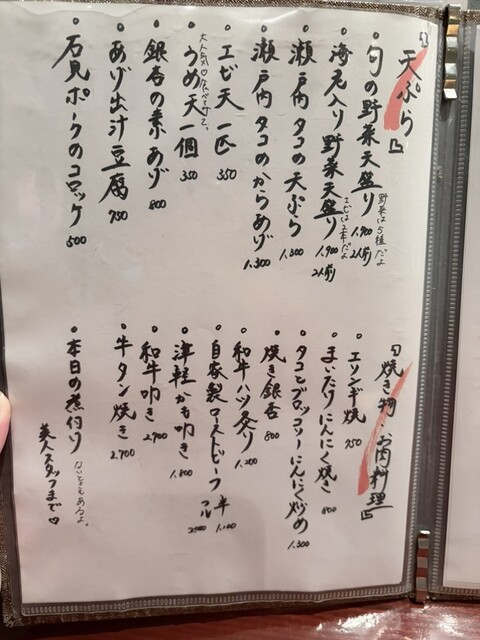 『天ぷら』
・旬の野菜天盛り 1,900 2人前
野菜は5種だよ
・海老入り野菜天盛り 1,900 2人前
エビは2本だよ
・瀬戸内タコの天ぷら 1,300
・瀬戸内タコのからあげ 1,300
・エビ天一匹 350
・うめ天一個 350
大人気♡食べてみて。
・銀杏の素あげ 800
・あげ出汁豆腐 750
・石見ポークのコロッケ 500
『焼き物・お肉料理』
・エソンギ焼 750
・まいたけにんにく焼き 800
・タコとブロッコリーにんにく炒め 1,300
・焼き銀杏 800
・和牛ハツ炙り 1,200
・自家製ローストビーフ 半 1,100
フル 2500
・津軽かも叩き 1,800
・和牛叩き 2,900
・牛タン焼き 2,700
・本日の煮付け
ないときもあるよ。
美人スタッフまで♡